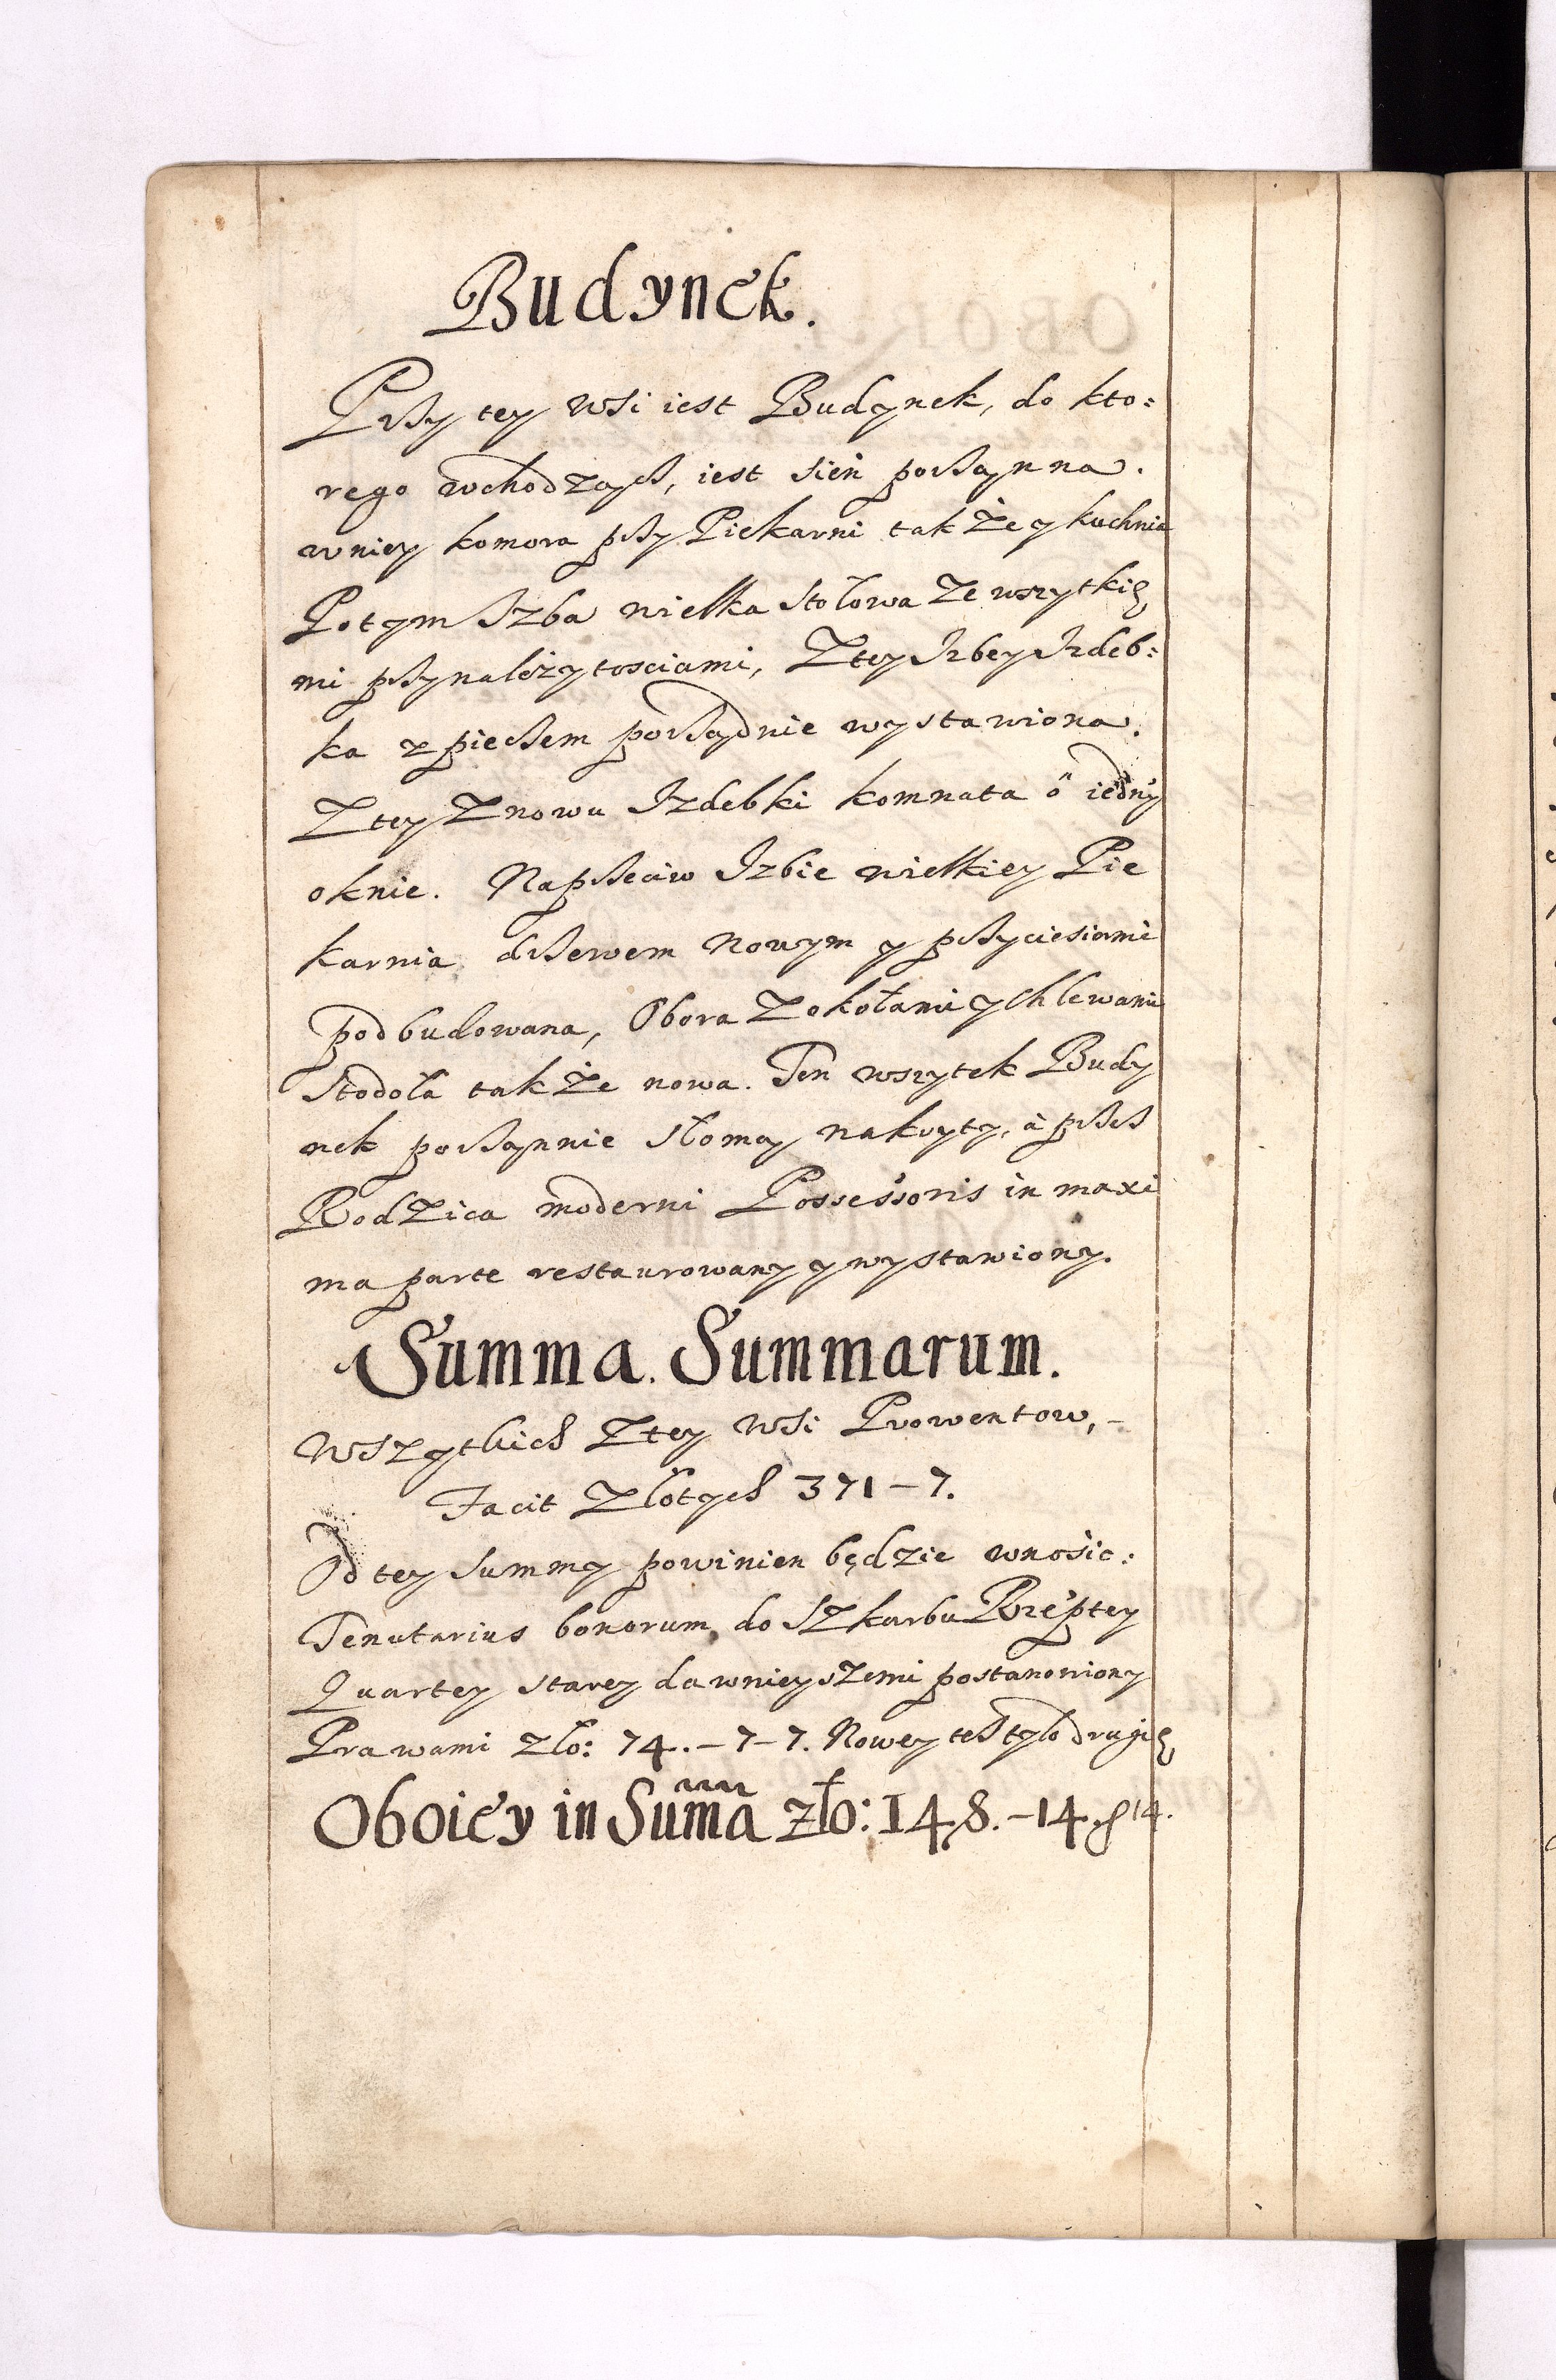 Budynek.
Przy tey wsi iest Budynek, do kto:
rego wchodząc, iest sień porządnna.
wniey komora przy Piekarni takze y kuchnia
Potym Izba wielka stołowa ze wszytkie
mi przynależytosciami, Z tey Izbey Izdeb:
ka z piecem porządnie wystawiona.
Z tey znowu Izdebki komnata ő iedny
oknie. Naprzeciw Izbie wielkiey Pie
karnia drzewem nowym y przyciesiami
podbudowana, Obora zokołami y chlewami
stodoła takze nowa. Ten wszytek Budy
nek porządnnie słomą nakryty, à przez
Rodzica moderni Possessoris in maxi
ma parte restaurowany y wystawiony.
Summa. Summarum.
Wszytkich z tey wsi Prowentow,-
Facit Złotych 371-7.
Od tey summy powinien będzie wnosic:
Tenutarius bonorum do Szkarbu Rzeptey
Quartey starey dawnieyszemi postanowiony
Prawami zło: 74.-7-7. Nowey tesz tylo drugie
Oboiey in Sum̃ã zło: 148.-14. 14.